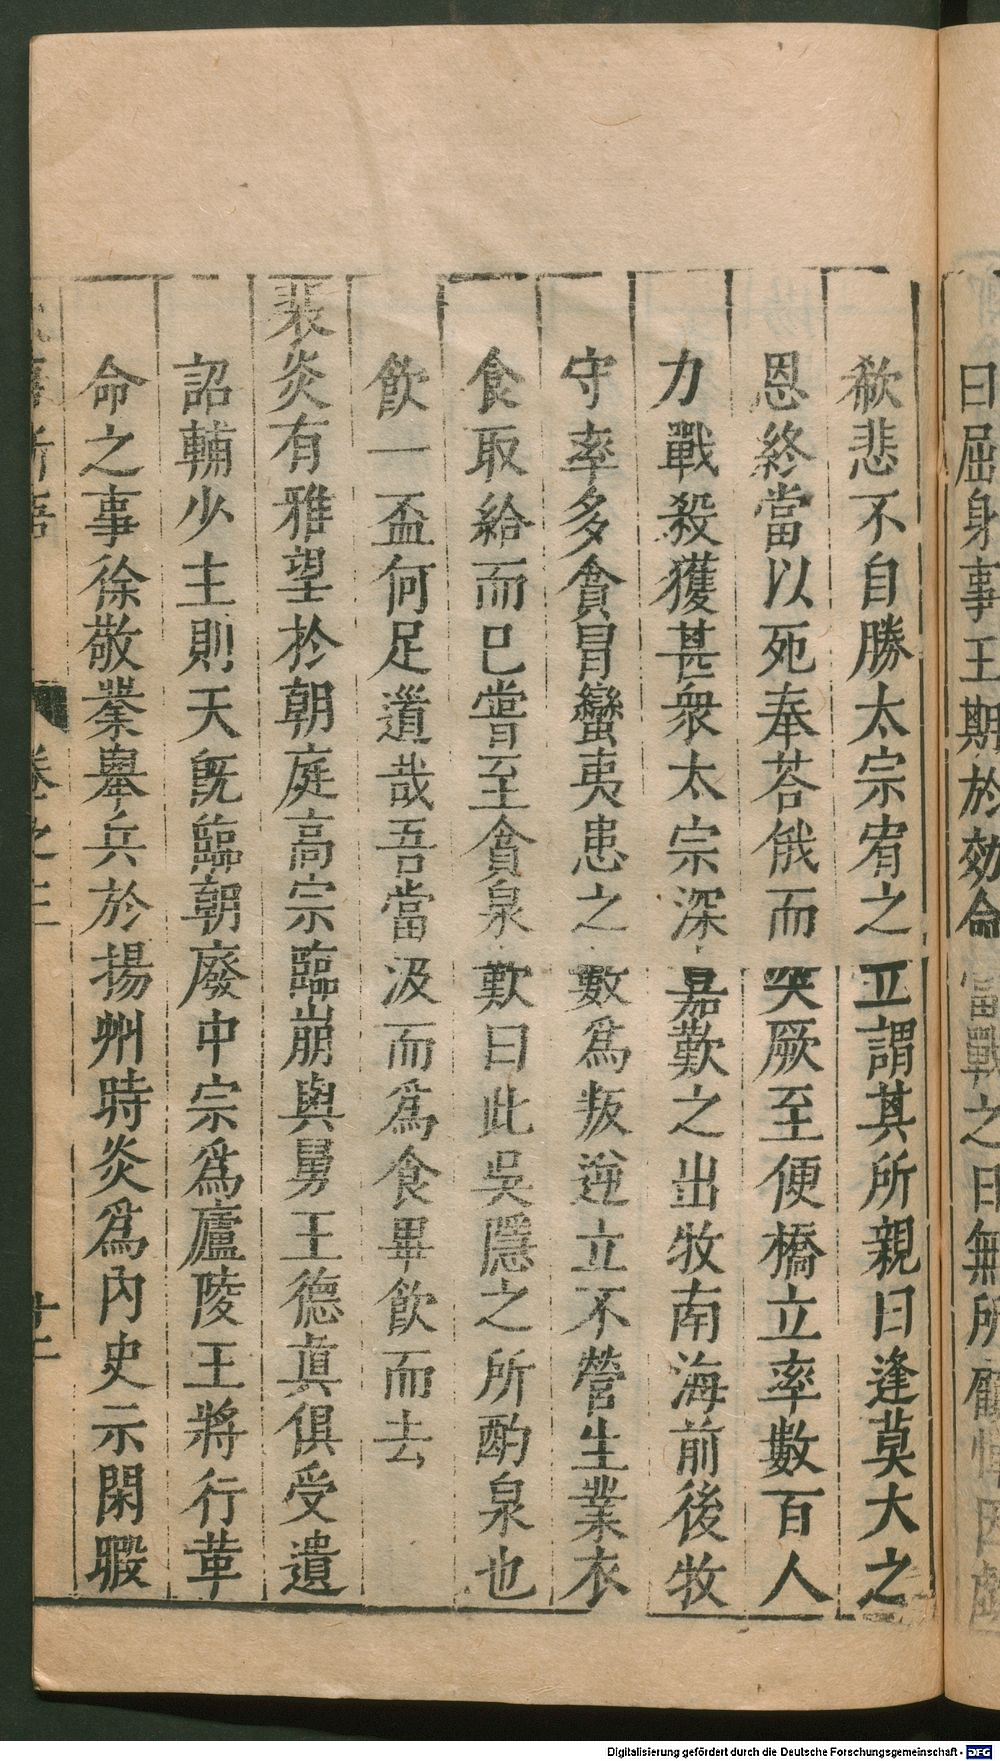 曰屈身事王期於効命當戰之日無所顧憚因
欷悲不自勝太宗宥之立謂其所親曰逢莫大之
恩終當以死奉荅俄而突厥至便橋立率數百人
力戰殺獲甚衆太宗深嘉歎之出牧南海前後牧
守率多貪冒蠻夷患之數爲叛逆立不營生業衣
食取給而巳嘗至貪泉歎曰此吳隱之所酌泉也
飲一盃何足道哉吾當汲而爲食畢飲而去
裴炎有雅望於朝庭高宗臨崩與舅王德眞俱受遺
詔輔少主則天旣臨朝廢中宗爲廬陵王將行革
命之事徐敬業舉兵於揚州時炎爲內史示閑暇
卷之三
廿二
Digitalisierung gefördert durch die Deutsche Forschungsgemeinschaft - DFG